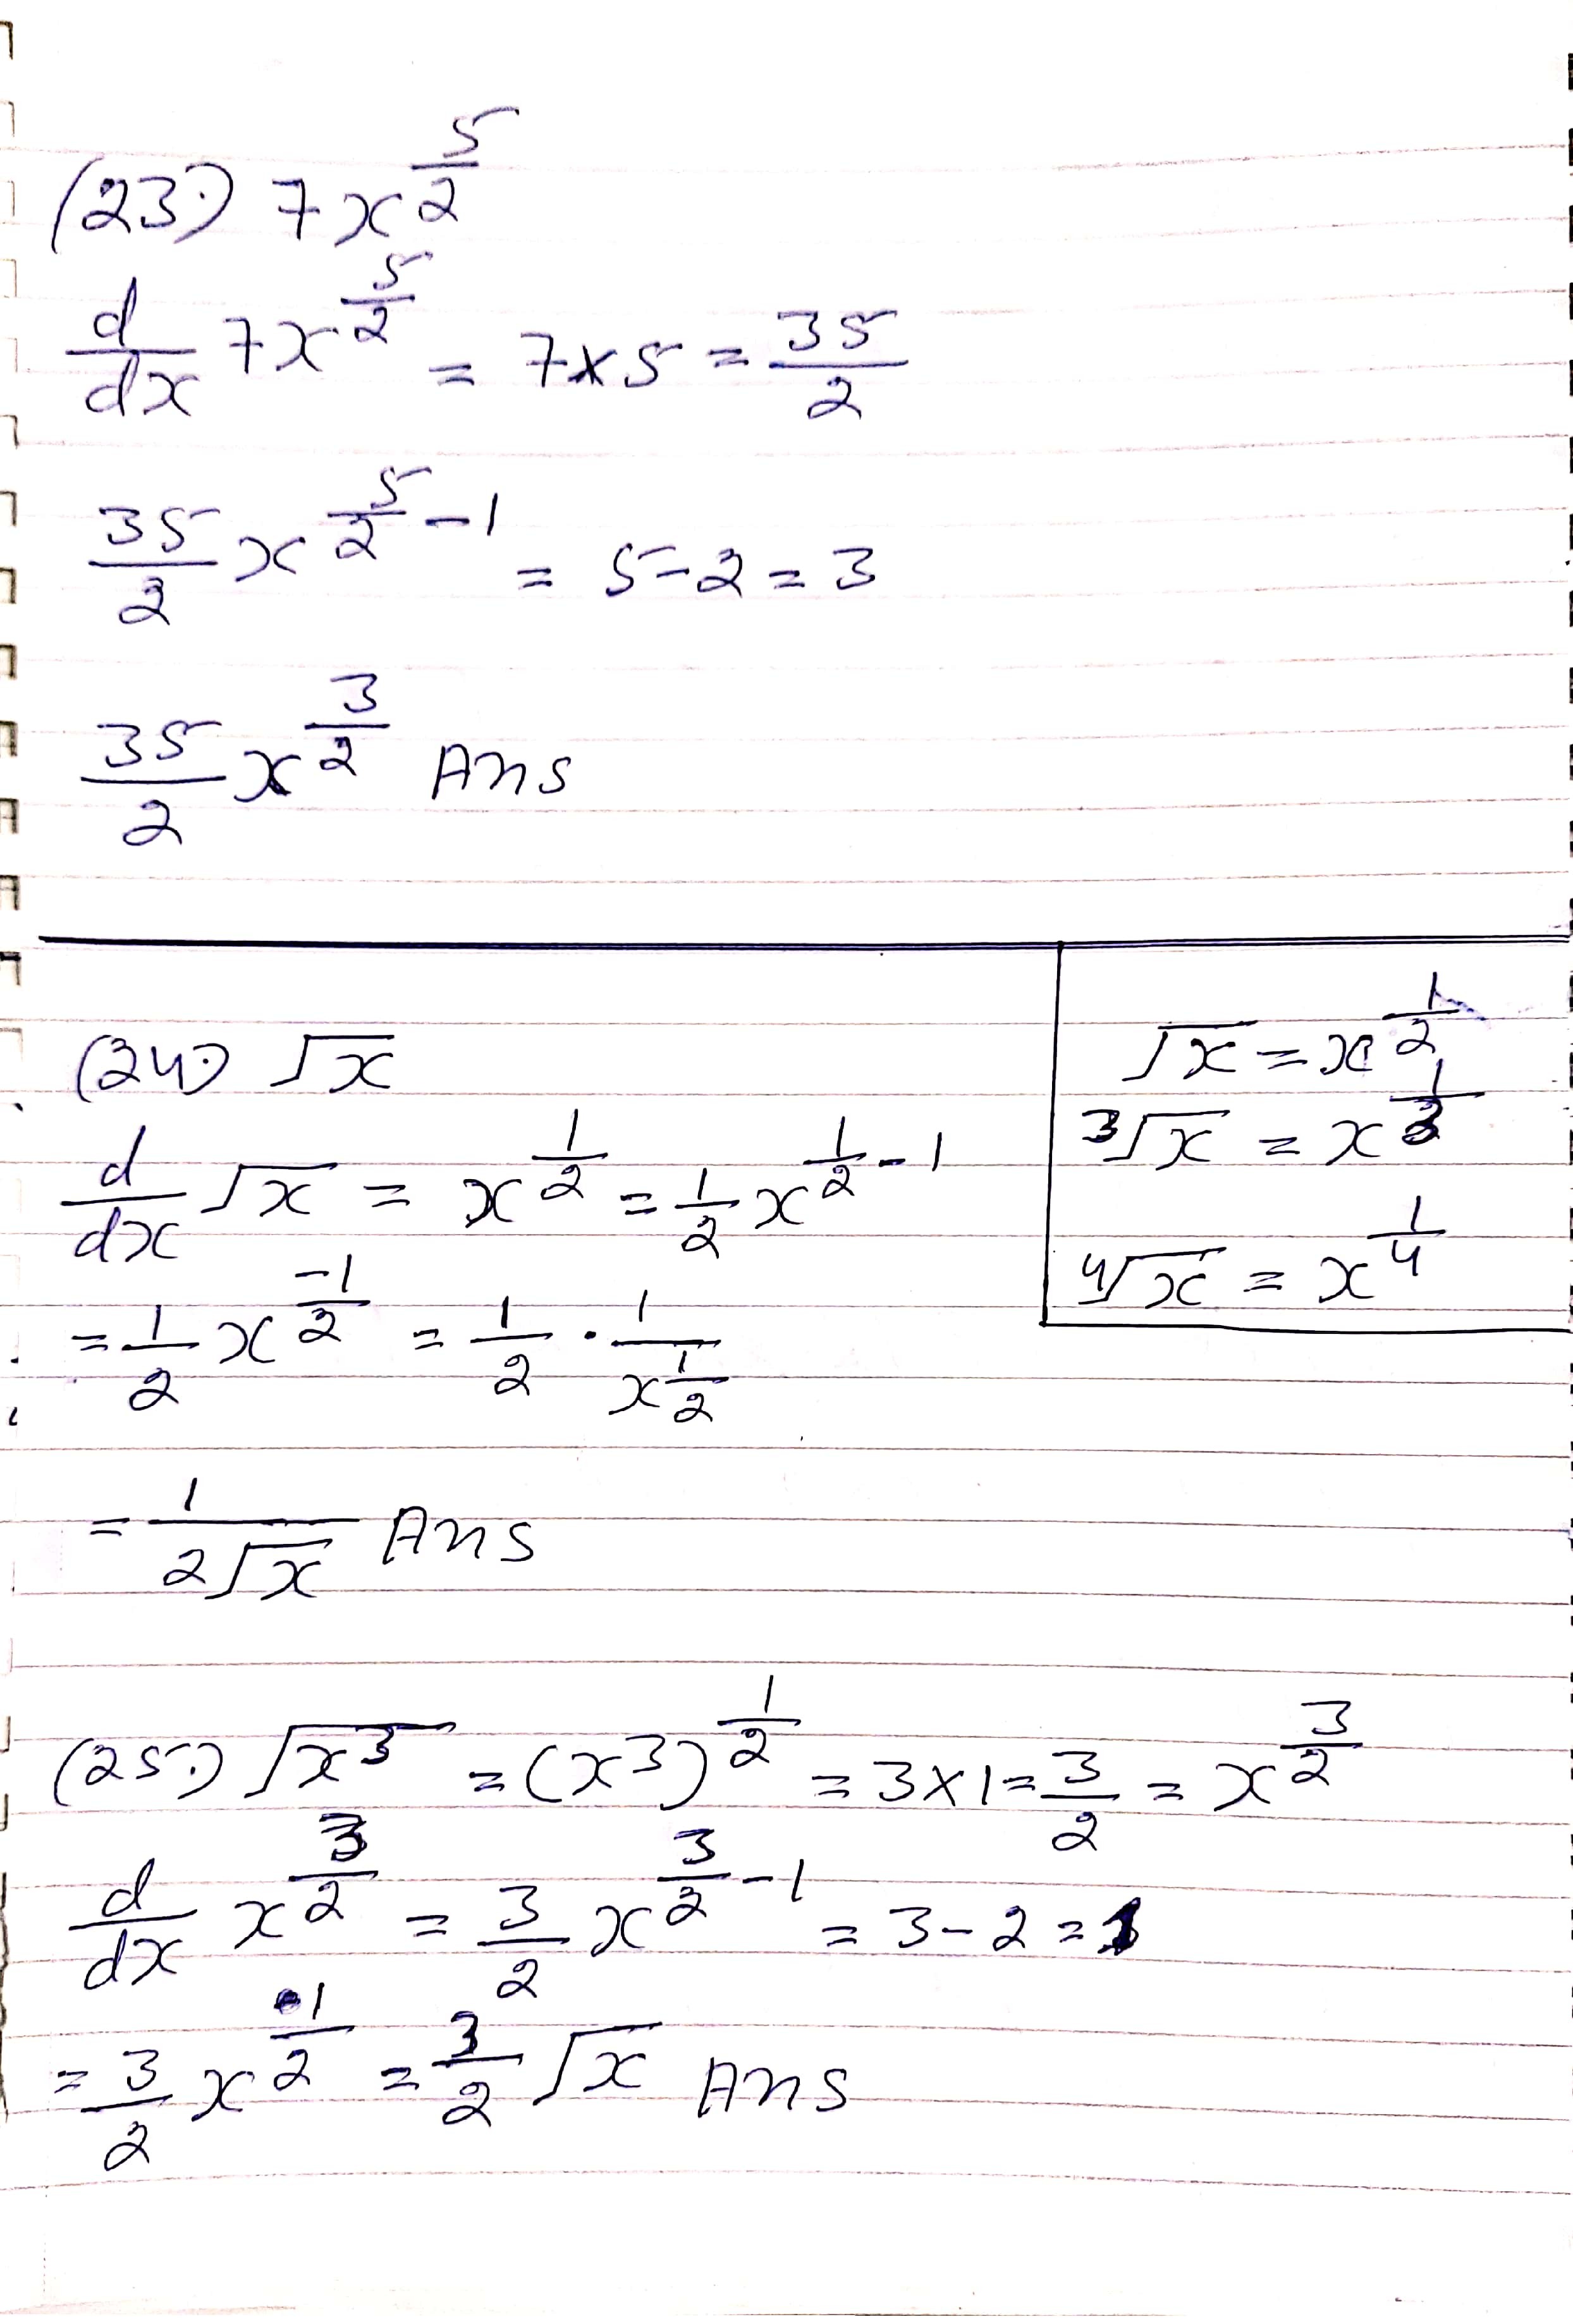 (23.) 7x^{5/2}
d/dx 7x^{5/2} = 7×5 = 35/2
35/2 x^{5/2 - 1} = 5-2 = 3
35/2 x^{3/2} Ans
(24.) √x
d/dx √x = x^{1/2} = 1/2 x^{1/2 - 1}
= 1/2 x^{-1/2} = 1/2 · 1/x^{1/2}
= 1/2√x Ans
√x = x^{1/2}
3√x = x^{1/3}
4√x = x^{1/4}
(25.) √x^3 = (x^3)^{1/2} = 3×1 = 3/2 = x^{3/2}
d/dx x^{3/2} = 3/2 x^{3/2 - 1} = 3-2 = 1
= 3/2 x^{1/2} = 3/2 √x Ans